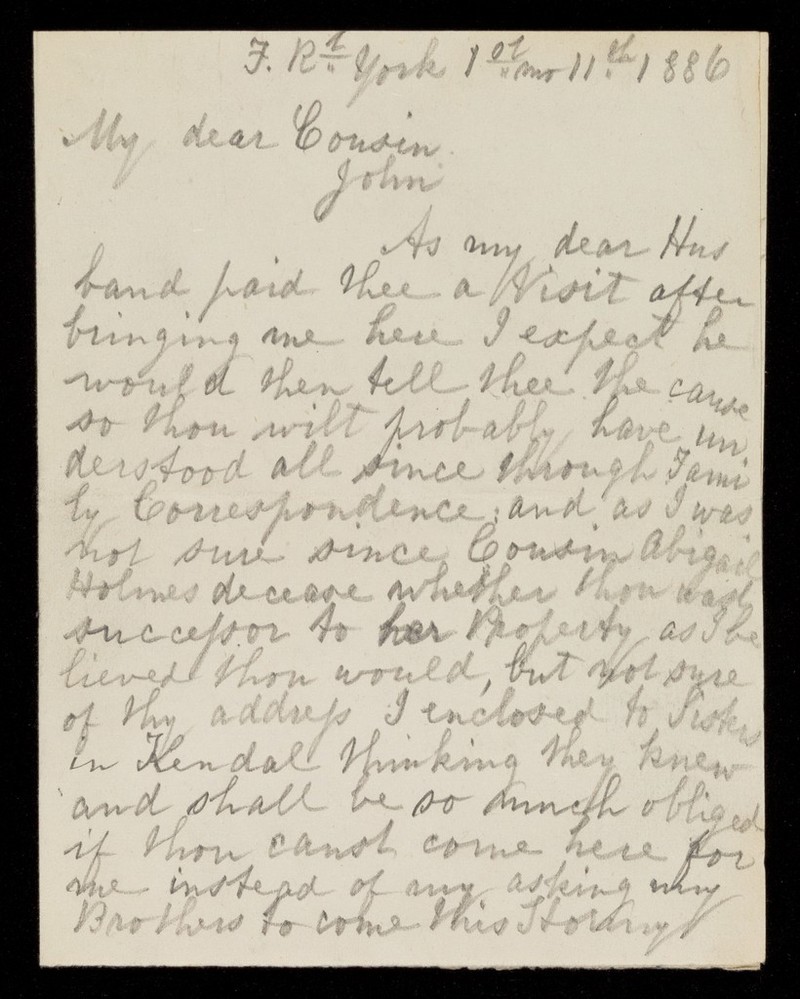 F. Rt York 1st mo 11th 1886
My dear Cousin
John
As my dear Hus
band paid thee a Visit after
bringing me here I expect he
would then tell thee the cause
so thou wilt probably have un
derstood all since through Fami
ly Correspondence; and as I was
not sure since Cousin Abigail
Holmes decease whether thou wast
successor to her Property as I be
lieved thou would, but not sure
of thy address I enclosed to Sisters
in Kendal thinking they knew
and shall be so much obliged
if thou canst come here for
me instead of my asking my
Brothers to come this Stormy